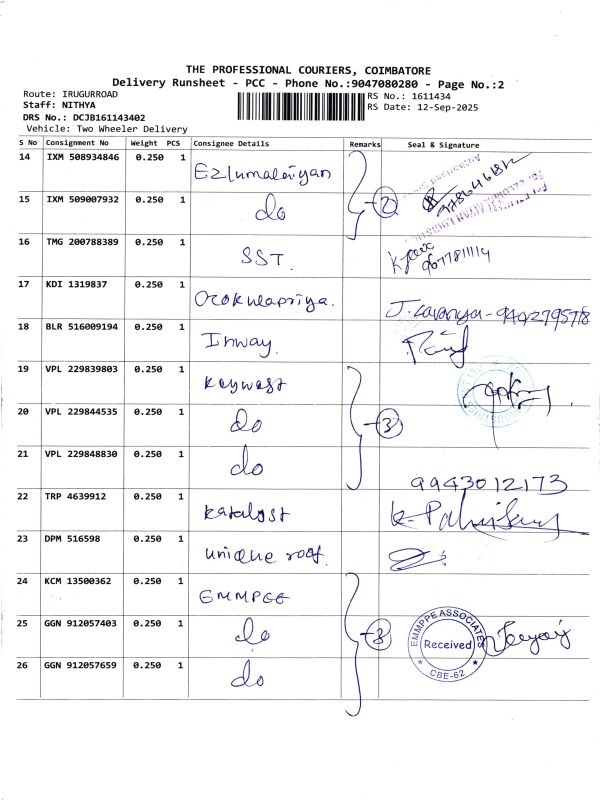 THE PROFESSIONAL COURIERS, COIMBATORE
Delivery Runsheet - PCC - Phone No.:9047080280 - Page No.:2
Route: IRUGURROAD
Staff: NITHYA
DRS No.: DCJB161143402
Vehicle: Two Wheeler Delivery
RS No.: 1611434
RS Date: 12-Sep-2025
S No Consignment No Weight PCS Consignee Details Remarks Seal & Signature
14 IXM 508934846 0.250 1 Ezhumalaiyan
15 IXM 509007932 0.250 1 do 2
16 TMG 200788389 0.250 1 SST. 9677811114
17 KDI 1319837 0.250 1 J. Lavanya - 9442795718
18 BLR 516009194 0.250 1 Inway.
19 VPL 229839803 0.250 1 Keywest
20 VPL 229844535 0.250 1 do 3
21 VPL 229848830 0.250 1 do 9943012173
22 TRP 4639912 0.250 1 Katalyst
23 DPM 516598 0.250 1 unique roof.
24 KCM 13500362 0.250 1 EMMPEE
25 GGN 912057403 0.250 1 do 3 EMMPPE ASSOCIATES Received CBE-62
26 GGN 912057659 0.250 1 do